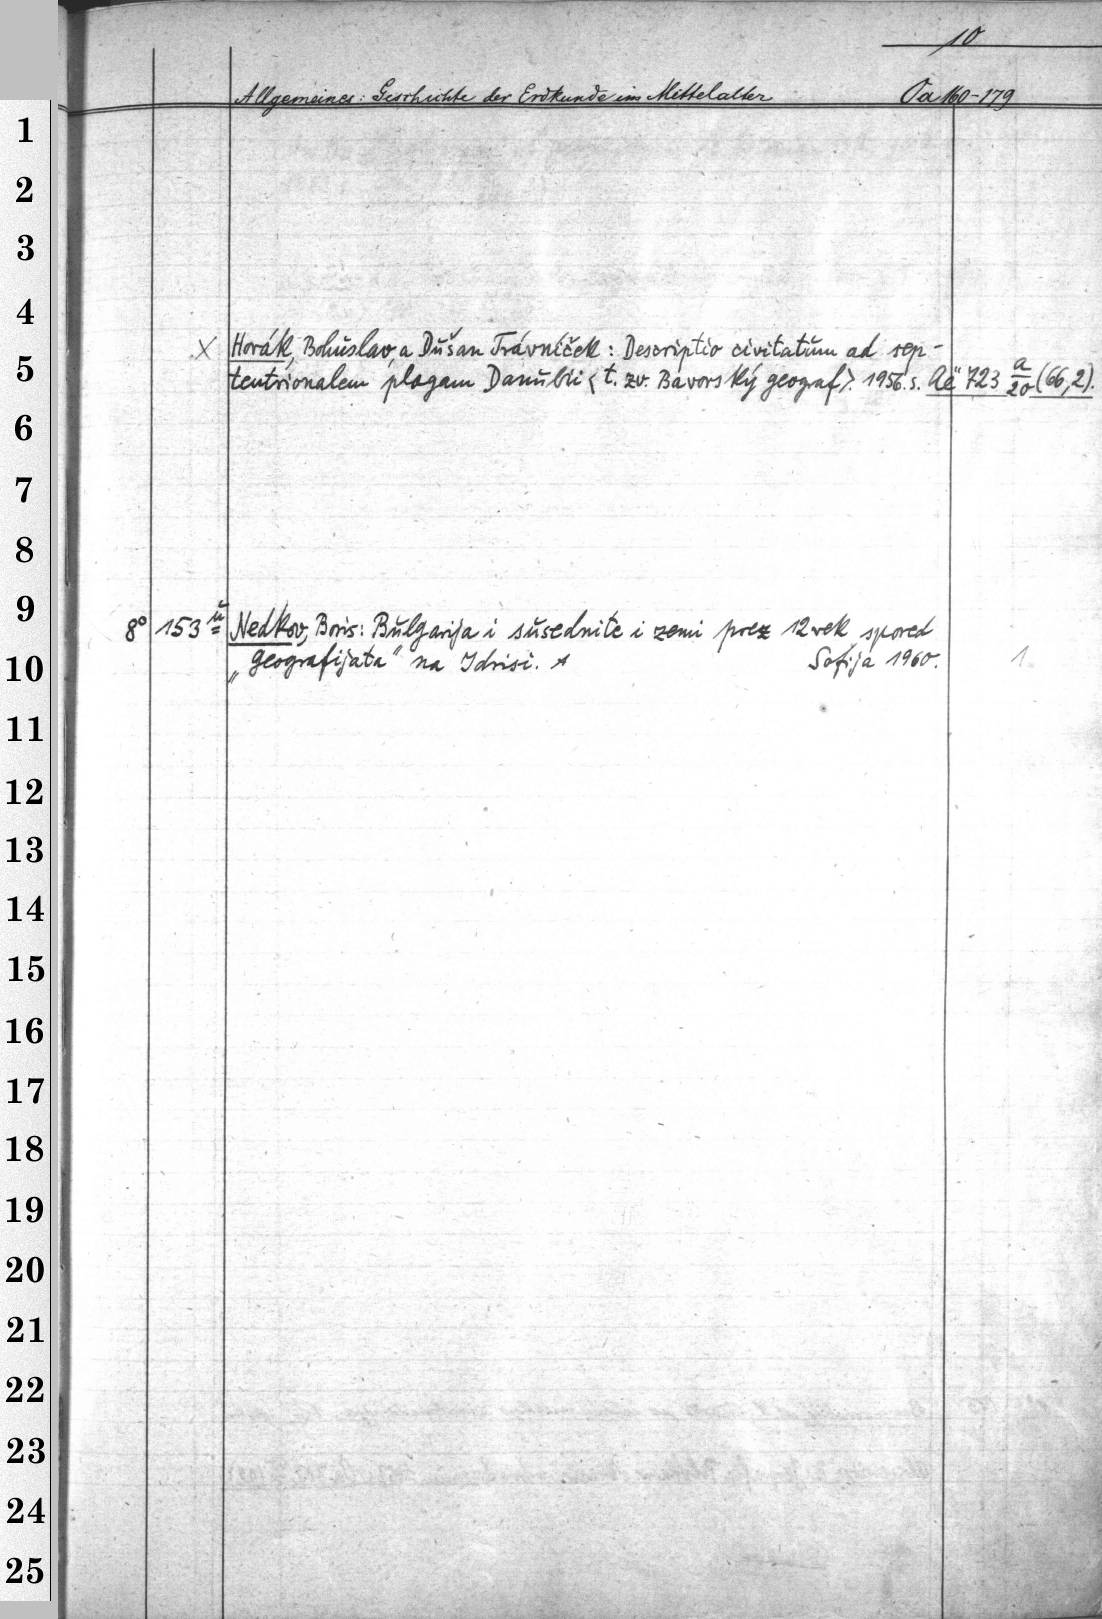 10
Allgemeines: Geschichte der Erdkunde im Mittelalter Oa 160-179
1
2
3
4
x Horák, Bohuslav a Dušan Trávníček: Descriptio civitatum ad sep-
5
tentrionalem plagam Danubii <t. zv. Bavorský geograf>. 1956. s. Ac" 723 a/20 (66,2).
6
7
8
9
8° 153 ü Nedkov, Boris: Bŭlgarija i sŭsednite i zemi prez 12 vek spored
10
„geografijata" na Idrisi. Sofija 1960. 1
11
12
13
14
15
16
17
18
19
20
21
22
23
24
25